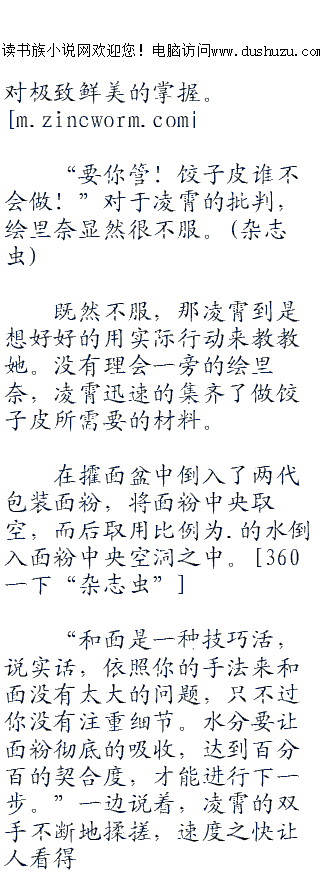 读书族小说网欢迎您！电脑访问www.dushuzu.com
对极致鲜美的掌握。
[m.zincworm.com|
“要你管！饺子皮谁不
会做！”对于凌霄的批判，
绘里奈显然很不服。(杂志
虫)
既然不服，那凌霄到是
想好好的用实际行动来教教
她。没有理会一旁的绘里
奈，凌霄迅速的集齐了做饺
子皮所需要的材料。
在擓面盆中倒入了两代
包装面粉，将面粉中央取
空，而后取用比例为.的水倒
入面粉中央空洞之中。[360
一下“杂志虫”]
“和面是一种技巧活，
说实话，依照你的手法来和
面没有太大的问题，只不过
你没有注重细节。水分要让
面粉彻底的吸收，达到百分
百的契合度，才能进行下一
步。”一边说着，凌霄的双
手不断地揉搓，速度之快让
人看得